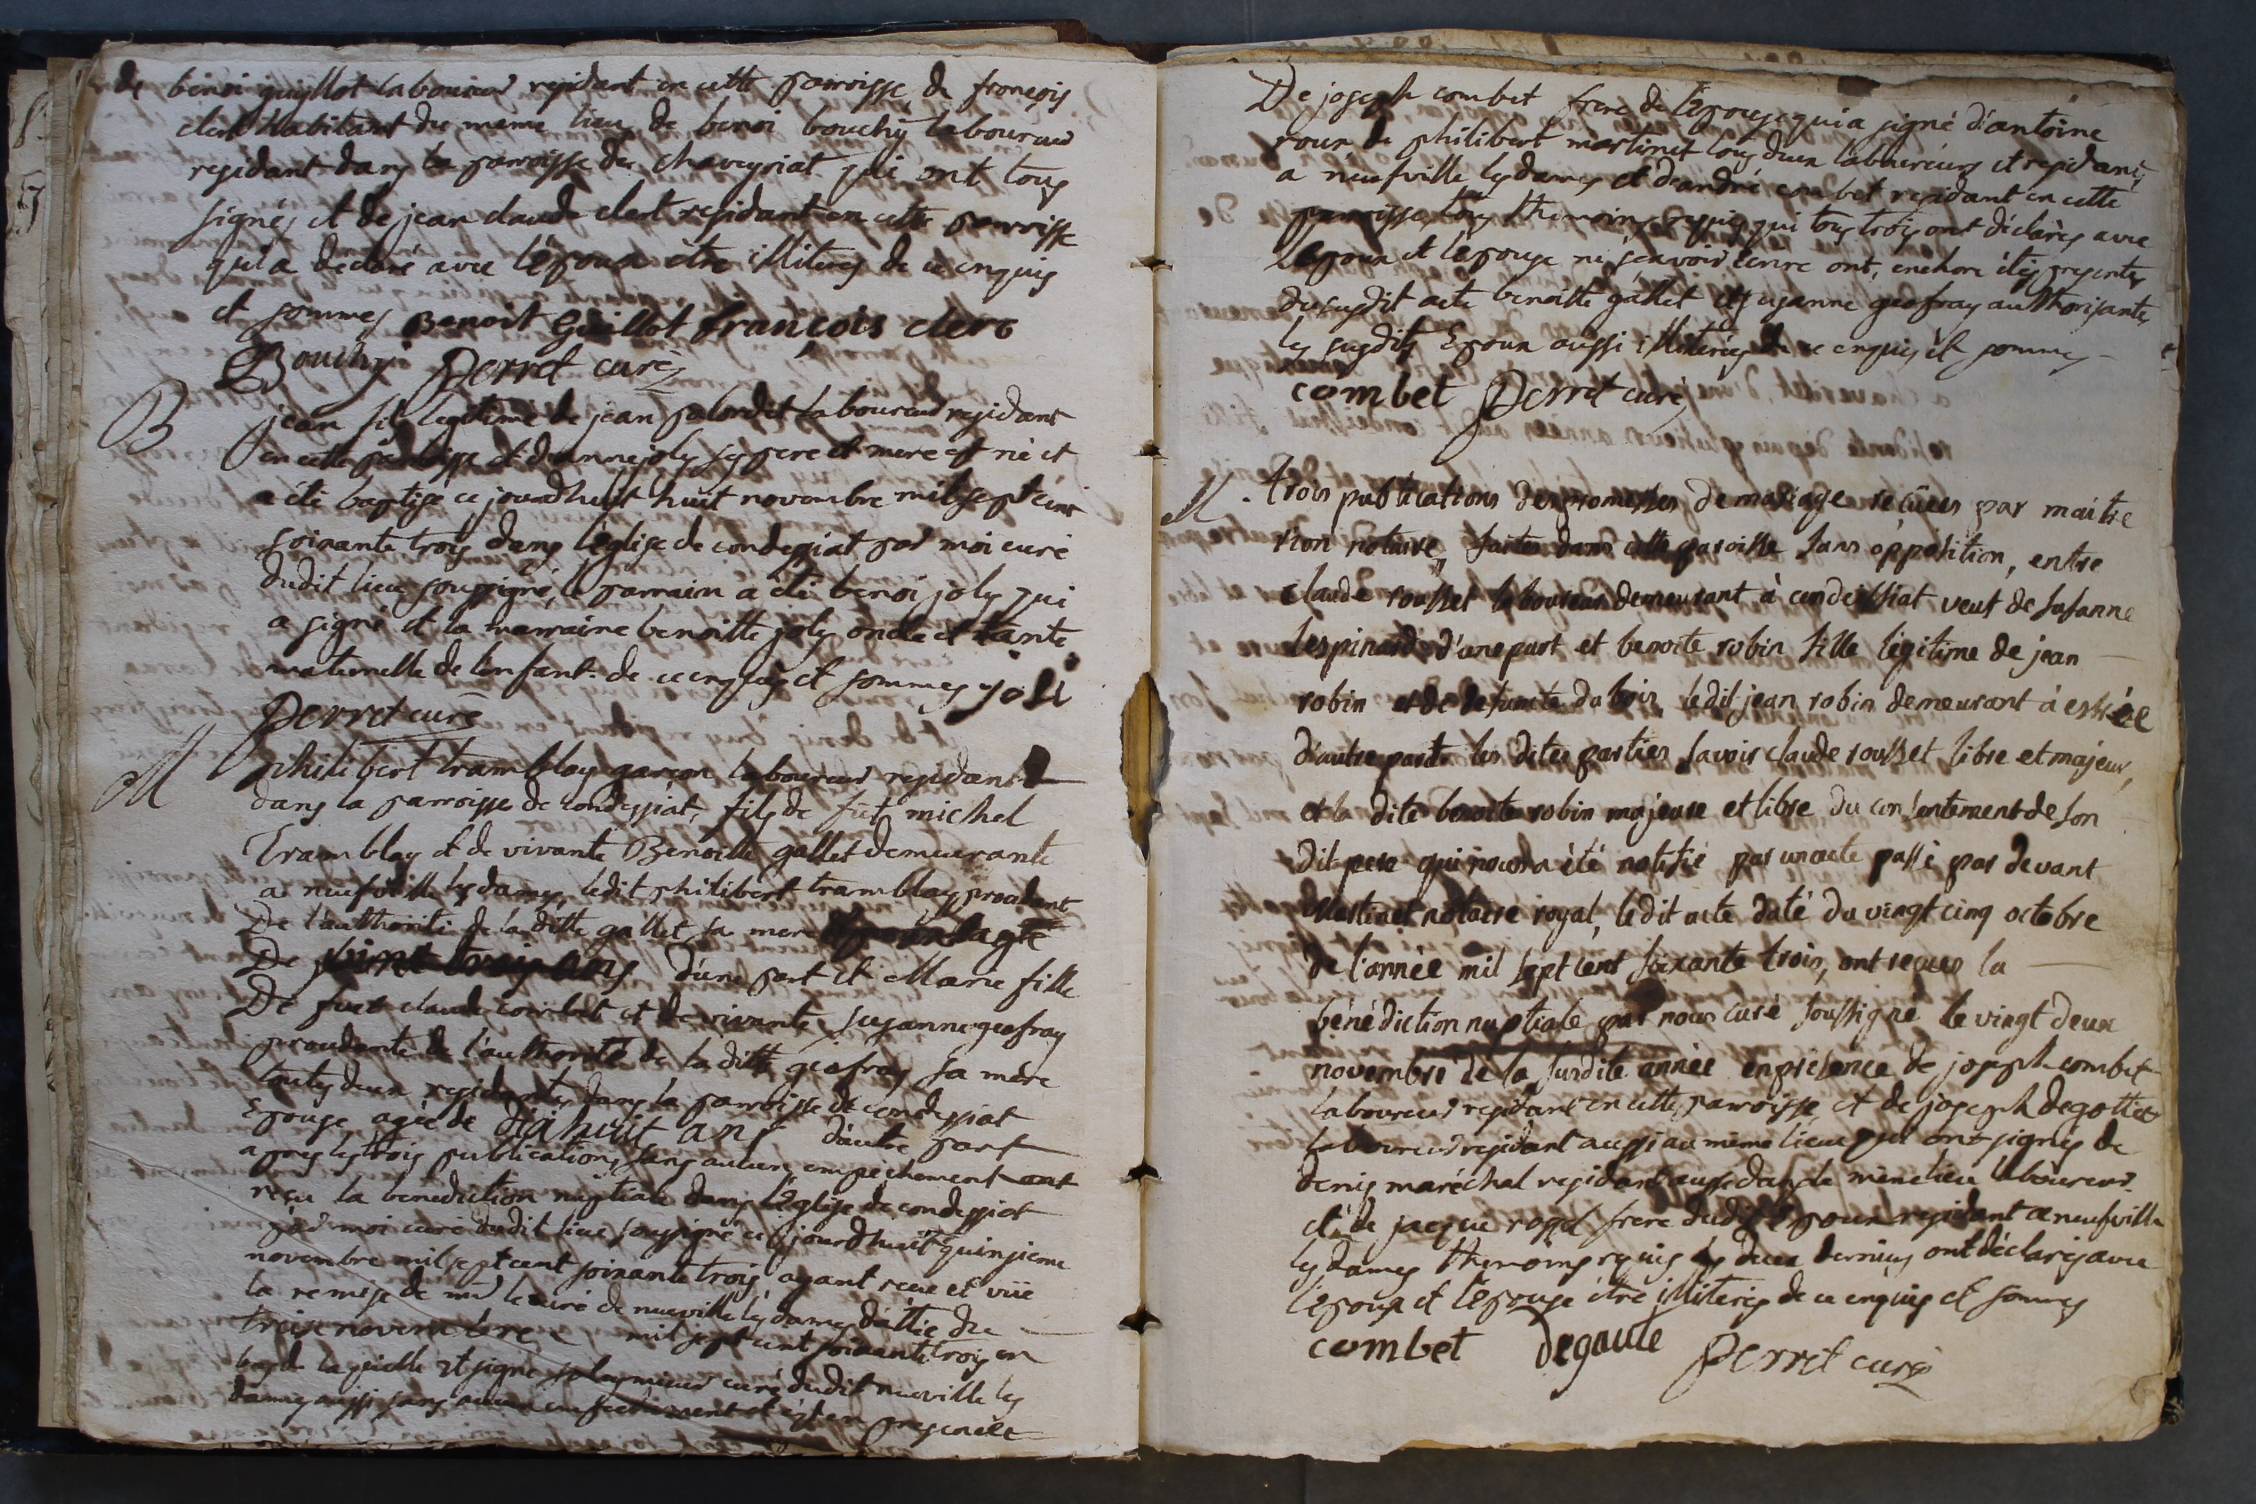 de benoi guyllot laboureur residant en cette parroisse, de françois
clert habitant du meme lieu, de benoi bouchy laboureur
residant dans la parroisse de chaveyriat qui ont tous
signés et de jean claude clert residant en cette parroisse
qui a declaré avec l'époux être illiterés de ce enquis
et sommes Benoit Guillot françois clerc
Bouchy Perret curé
B jean fils legitime de jean palordet laboureur residant
en cette parroisse et d'anne joly ses pere et mere est né et
a été baptisé ce jourdhuit huit novembre mil sept cent
soixante trois dans l'église de condessiat par moi curé
dudit lieu soussigné, le parrain a été benoi joly qui
a signé et la marraine benoitte joly oncle et tante
maternelle de l'enfant de ce enquis et sommes joli
Perret curé
M philibert tramblay garçon laboureur residant
dans la parroisse de condessiat, fils de fut michel
Tramblay et de vivante Benoitte gallet demeurante
a neufville les dames, ledit philibert tramblay procedant
De l'authorité de la ditte gallet sa mere
De d'une part et Marie fille
De fut claude combet et de vivante susanne geofray
procedante de l'authorité de la ditte geofray sa mère
toutes deux residantes dans la parroisse de condessiat
Epouse agée de dixhuit ans d'autre part
apres les trois publications sans aucun empechement ont
reçu la benediction nuptiale dans l'Eglise de condessiat
par moi curé dudit lieu soussigné ce jourdhuit quinzieme
novembre mil sept cent soixante trois ayant reçue et vüe
la remise de mr le curé de nueville les dames dattée du
treize novembre mil sept cent soixante trois en
bas de laquelle est signé curé dudit nueville les
dames aussi sans aucun empechement et c'est en presence
De joseph combet frere de l'Epouse qui a signé d'antoine
roux de philibert martinet tous deux laboureurs et residants
a neufville les dames et d'andré combet residant en cette
parroisse, tous themoins requis qui tous trois ont déclarés avec
l'Epoux et l'epouse ne sçavoir écrire ont, enchore étés presentes
du susdit acte benoitte gallet et susanne geofray authorisantes
les susdits Epoux aussi illiterées de ce enquis et sommes
combet Perret curé
M. trois publications des promesses de mariage reçües par maitre
rion notaire, faites dans cette paroisse sans opposition, entre
claude rousset laboureur demeurant à condeissiat veut de susanne
lespinard d'une part et benoite robin fille légitime de jean
robin et de defuncte du bois, ledit jean robin demeurant à estrée
d'autre part: les dites parties savoir claude rousset libre et majeur,
et la dite benoite robin majeure et libre du consentement de son
dit pere qui nous a été notifié par un acte passé par devant
Martinet notaire royal, ledit acte daté du vingt cinq octobre
de l'année mil sept cent soixante trois, ont reçues la
bénédiction nuptiale par nous curé soussigné le vingt deux
novembre de la susdite année en présence de joseph combet
laboureur residant en cette parroisse et de joseph degottet
laboureur residant aussi au même lieu qui ont signés de
denis maréchal residant aussi dans le même lieu laboureur
et de jacque rosset frere dudit Epoux residant a neufville
les dames themoins requis les deux derniers ont déclarés avec
l'époux et l'épouse être illiterés de ce enquis et sommes
combet degoute Perret curé